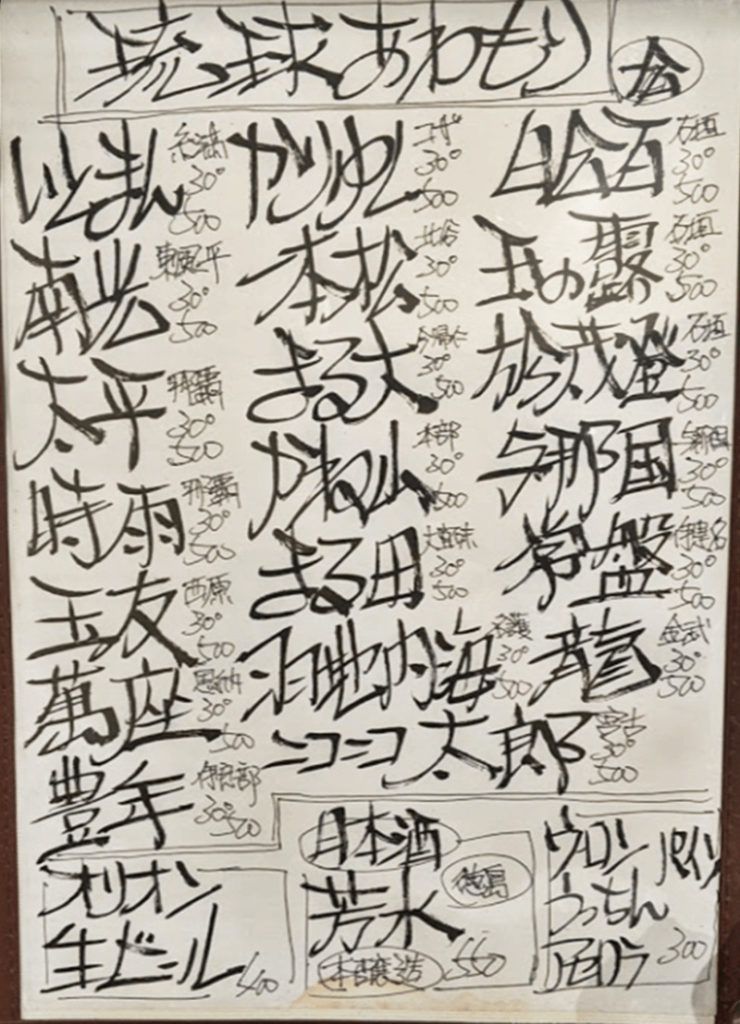 琉球あわもり
合
いとまん 糸満 30° 500
南光 東風平 30° 500
太平 那覇 30° 500
時雨 那覇 30° 500
玉友 西原 30° 500
萬座 恩納 30° 500
豊年 伊良部 30° 500
かりゆし コザ 30° 500
一本松 北谷 30° 500
まる大 今帰仁 30° 500
かね山 本部 30° 500
まる田 大宜味 30° 500
羽地内海 名護 30° 500
ニコニコ太郎 宮古 30° 500
白百合 石垣 30° 500
玉の露 石垣 30° 500
於茂登 石垣 30° 500
与那国 与那国 30° 500
常盤 伊是名 30° 500
龍 金武 30° 500
オリオン
生ビール 400
日本酒
芳水 徳島
本醸造 550
ウーロン パイン
うっちん
300